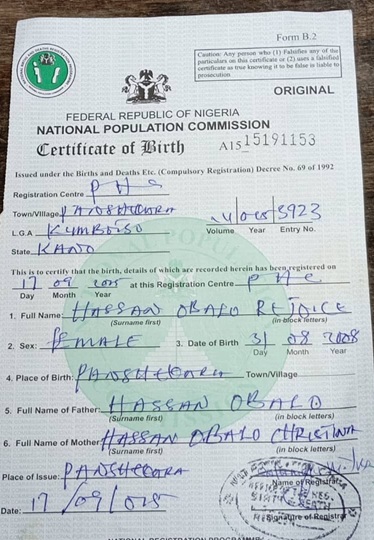 Form B.2
Caution: Any person who (1) Falsifies any of the
particulars on this certificate or (2) uses a falsified
certificate as true knowing it to be false is liable to
prosecution
ORIGINAL
FEDERAL REPUBLIC OF NIGERIA
NATIONAL POPULATION COMMISSION
Certificate of Birth A15 15191153
Issued under the Births and Deaths Etc. (Compulsory Registration) Decree No. 69 of 1992
Registration Centre PHC
Town/Village PANSHEKARA
L.G.A KUMBOTSO Volume Year Entry No. 3923
State KANO
This is to certify that the birth, details of which are recorded herein has been registered on
17 09 2015 at this Registration Centre PHC
Day Month Year
1. Full Name: HASSAN OBALO REJOICE
(Surname first) (in block letters)
2. Sex: FEMALE 3. Date of Birth 31 08 2008
Day Month Year
4. Place of Birth: PANSHEKARA Town/Village
5. Full Name of Father: HASSAN OBALO
(Surname first) (in block letters)
6. Full Name of Mother: HASSAN OBALO CHRISTINA
(Surname first) (in block letters)
Place of Issue: PANSHEKARA
Name of Registrar
Date: 17/09/015
Signature of Registrar